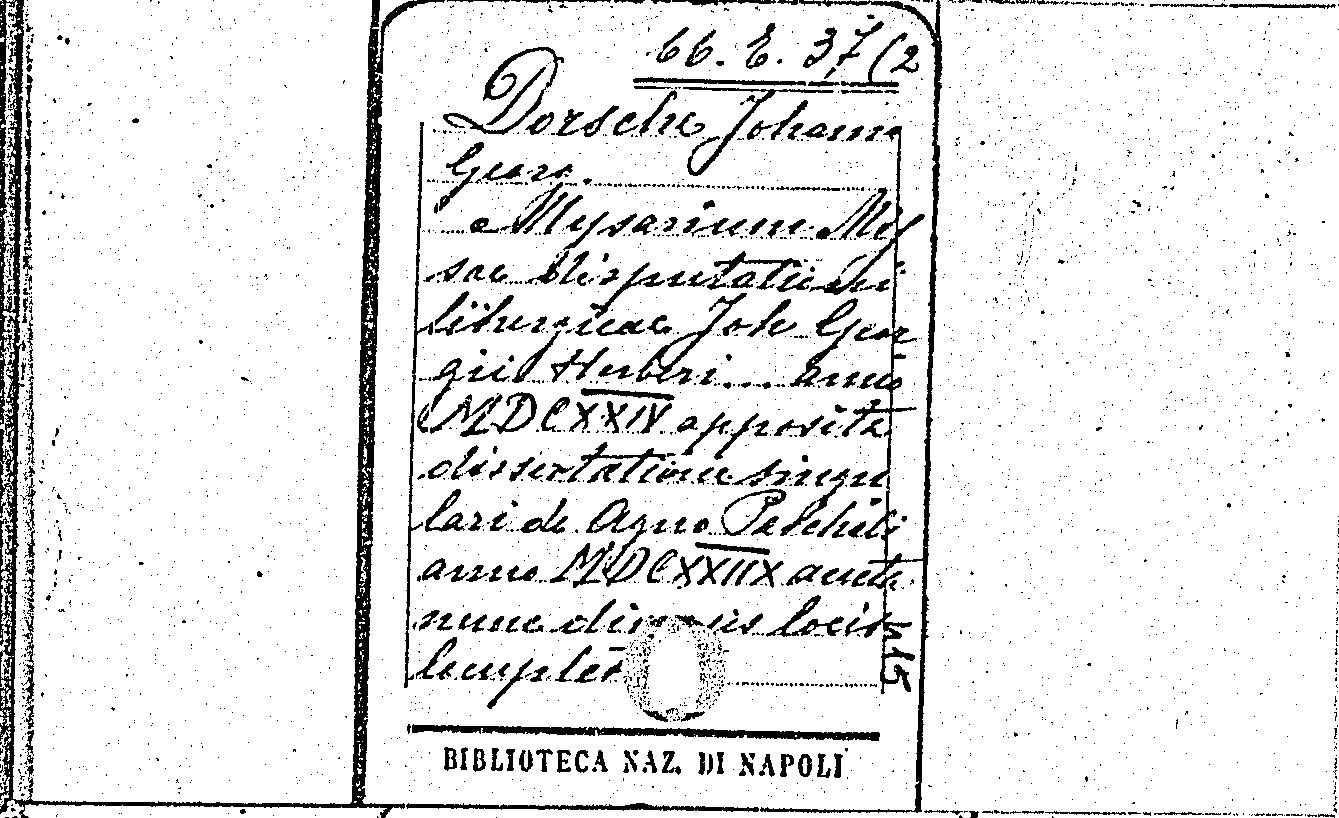 66. E. 37 (2
Dorsche Johann
Georg.
Mysarium Mys
sae disputationi
liturgicae Joh Geor
gii Herberi... anno
MDCXXIV apposita
dissertatione singu
lari de Agno Paschali
anno MDCXXIIX aucta
nunc locis
h15
BIBLIOTECA NAZ. DI NAPOLI